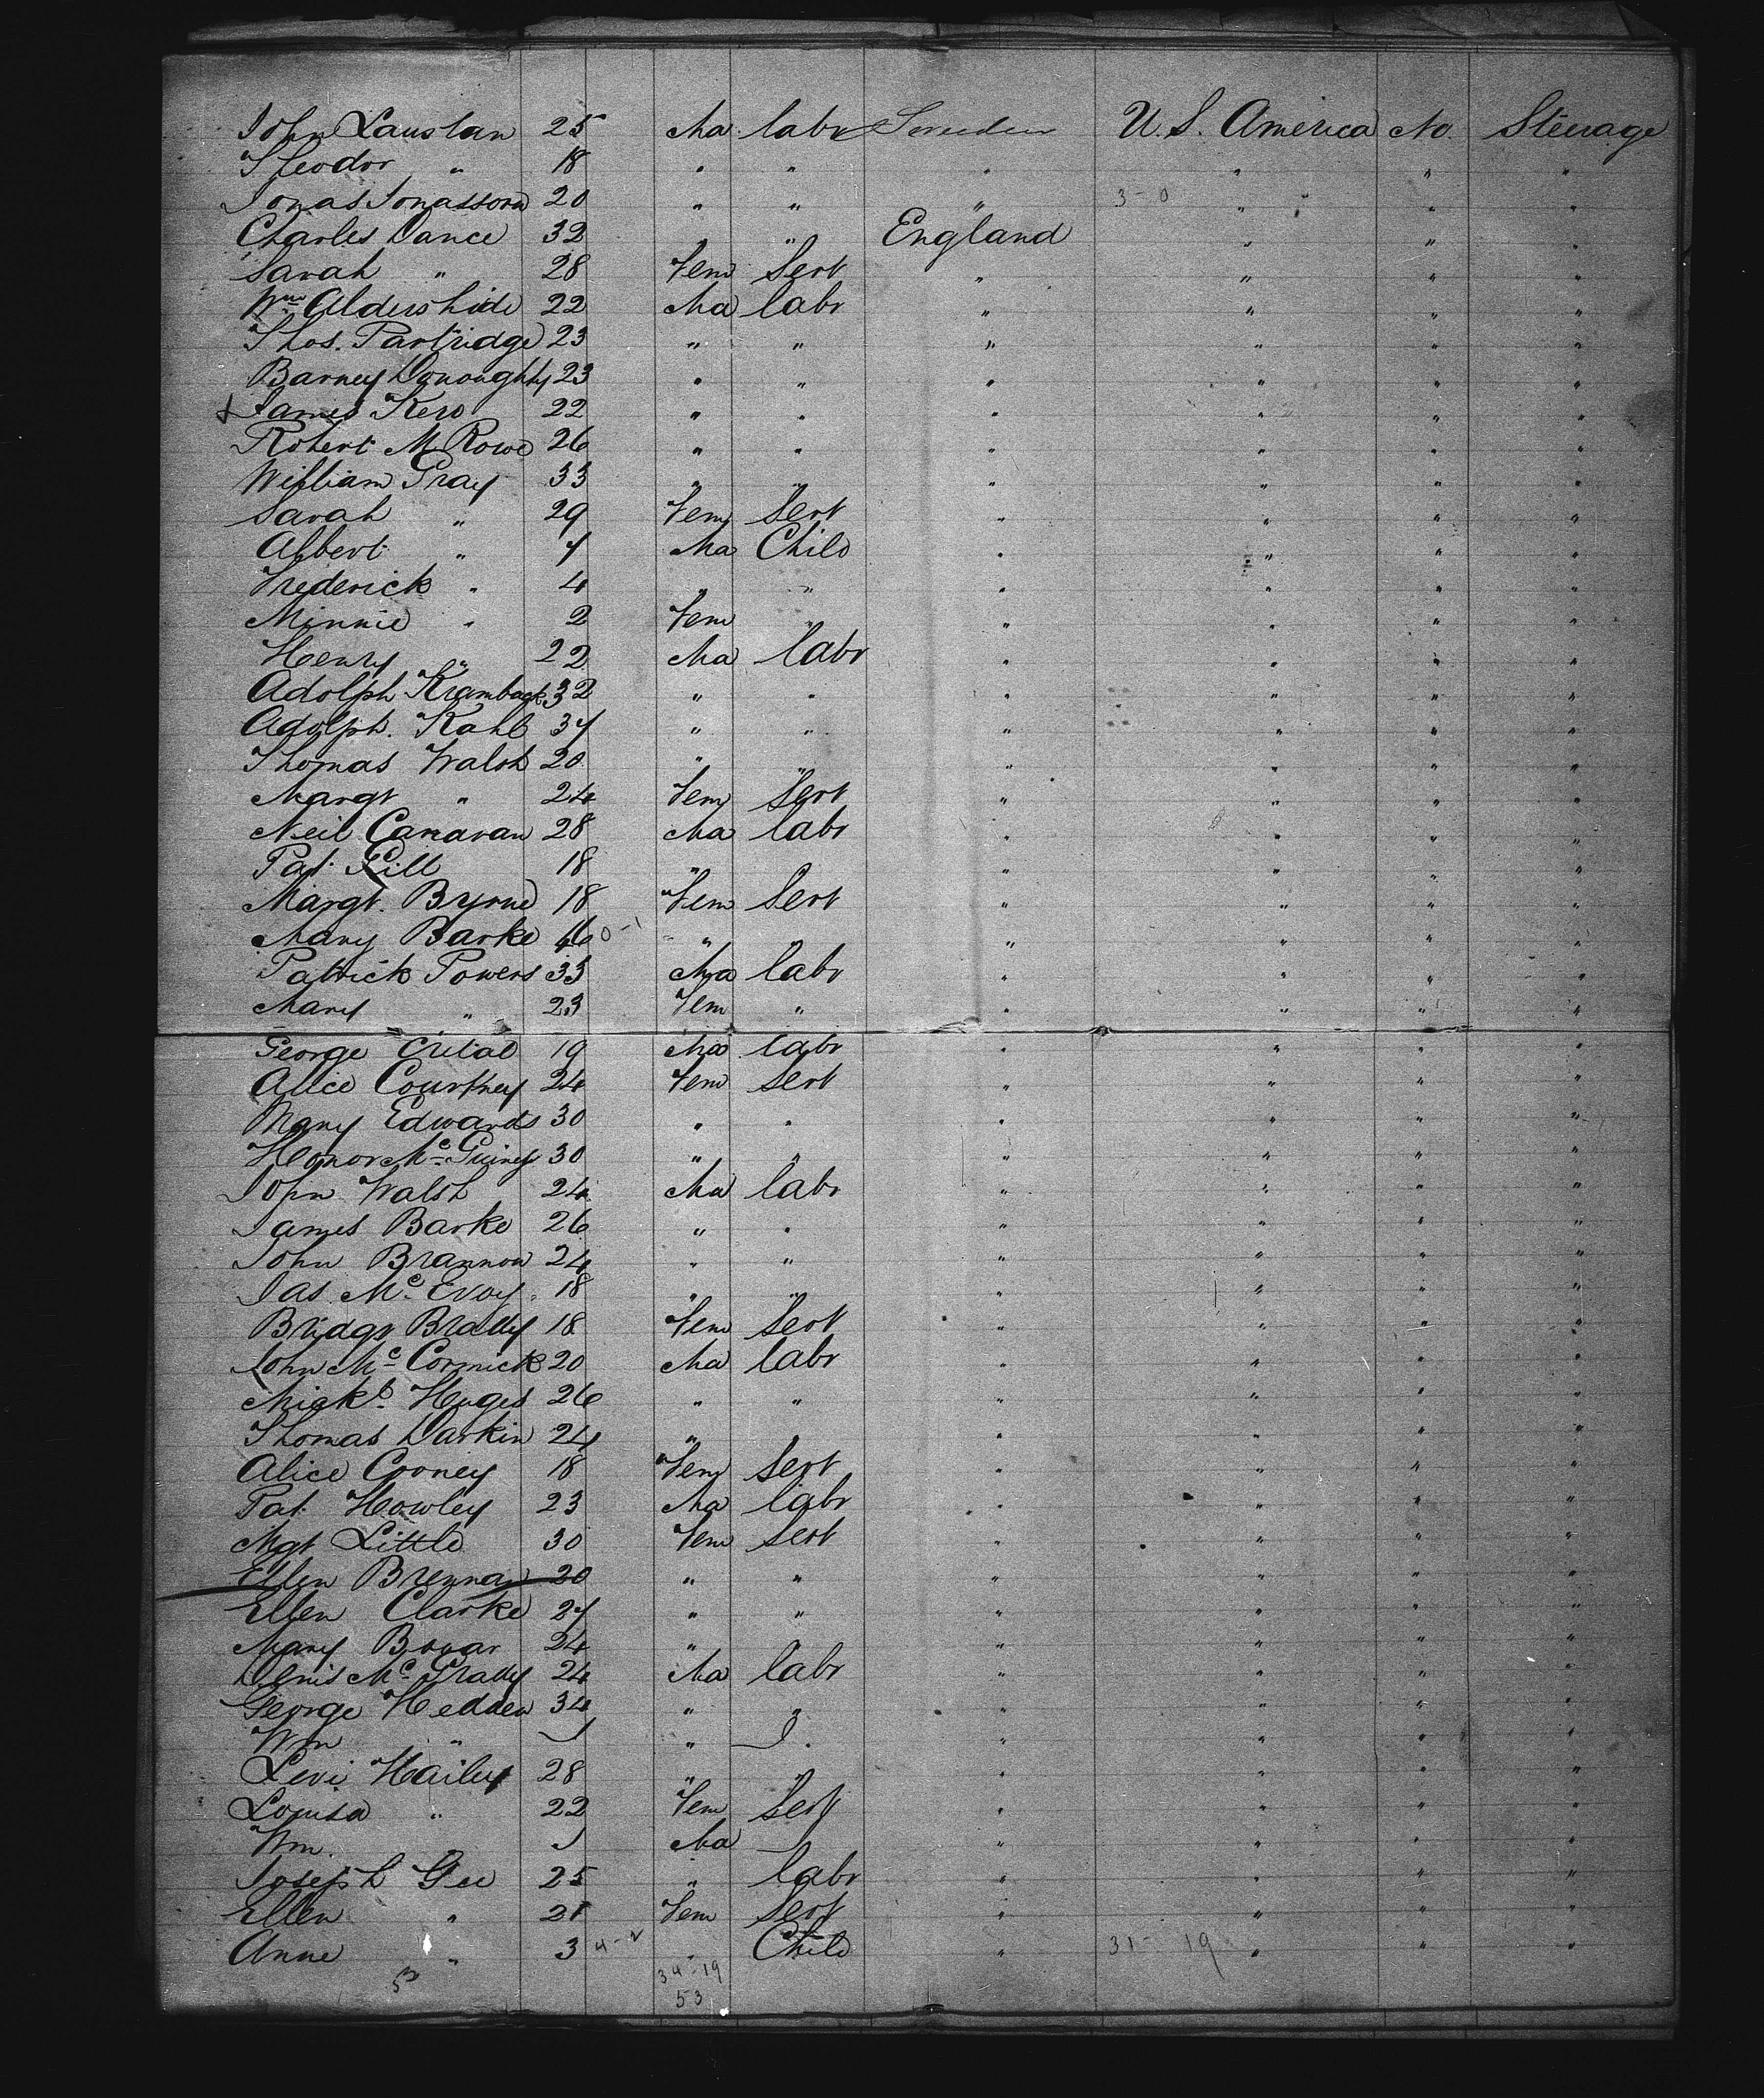 John Laustan 25 Ma labr Sweden U.S. America No. Steerage
Theodor " 18 " " " " " "
Jonas Jonasson 20 " " " 3-0 " " "
Charles Dance 32 " " England " " "
Sarah " 28 Fem Sert " " " "
Wm Aldershide 22 Ma labr " " " "
Thos. Partridge 23 " " " " " "
Barney Donoughty 23 " " " " " "
James Kerr 22 " " " " " "
Robert M Rowe 26 " " " " " "
William Gray 33 " " " " " "
Sarah " 29 Fem Sert " " " "
Albert " 7 Ma Child " " " "
Frederick " 4 " " " " " "
Minnie " 2 Fem " " " " "
Henry " 22 Ma labr " " " "
Adolph Kramback 32 " " " " " "
Adolph. Kahl 37 " " " " " "
Thomas Walsh 20 " " " " " "
Margt " 24 Fem Sert " " " "
Neil Canavan 28 Ma labr " " " "
Pat. Gill 18 " " " " "
Margt. Byrne 18 Fem Sert " " " "
Mary Barke 46 0-1 " " " " " "
Patrick Powers 33 Ma labr " " " "
Mary " 23 Fem " " " " "
George 19 Ma labr " " " "
Alice Courtney 24 Fem Sert " " " "
Mary Edwards 30 " " " " " "
Honor Mc Guiney 30 " " " " " "
John Walsh 24 Ma labr " " " "
James Barke 26 " " " " " "
John Brannon 24 " " " " " "
Jas Mc Evoy 18 " " " " " "
Bridgt Brady 18 Fem Sert " " " "
John Mc Cormick 20 Ma labr " " " "
Michl. Huges 26 " " " " " "
Thomas Darkin 24 " " " " " "
Alice Cooney 18 Fem Sert " " " "
Pat. Howley 23 Ma labr " " " "
Mgt Little 30 Fem Sert " " " "
Ellen Brennan 20 " " " " " "
Ellen Clarke 27 " " " " " "
Mary Bovar 24 " " " " "
Denis Mc Grady 24 Ma labr " " " "
George Hedden 34 " " " " " "
Wm " 1 " " " " "
Levi Hailey 28 " " " " " "
Louisa " 22 Fem Sert " " " "
Wm. 1 Ma " " " "
Joseph Gee 25 " labr " " " "
Ellen " 21 Fem Sert " " " "
Anne " 3 4-2 " Child " 31-19 " " "
53 34-19
53